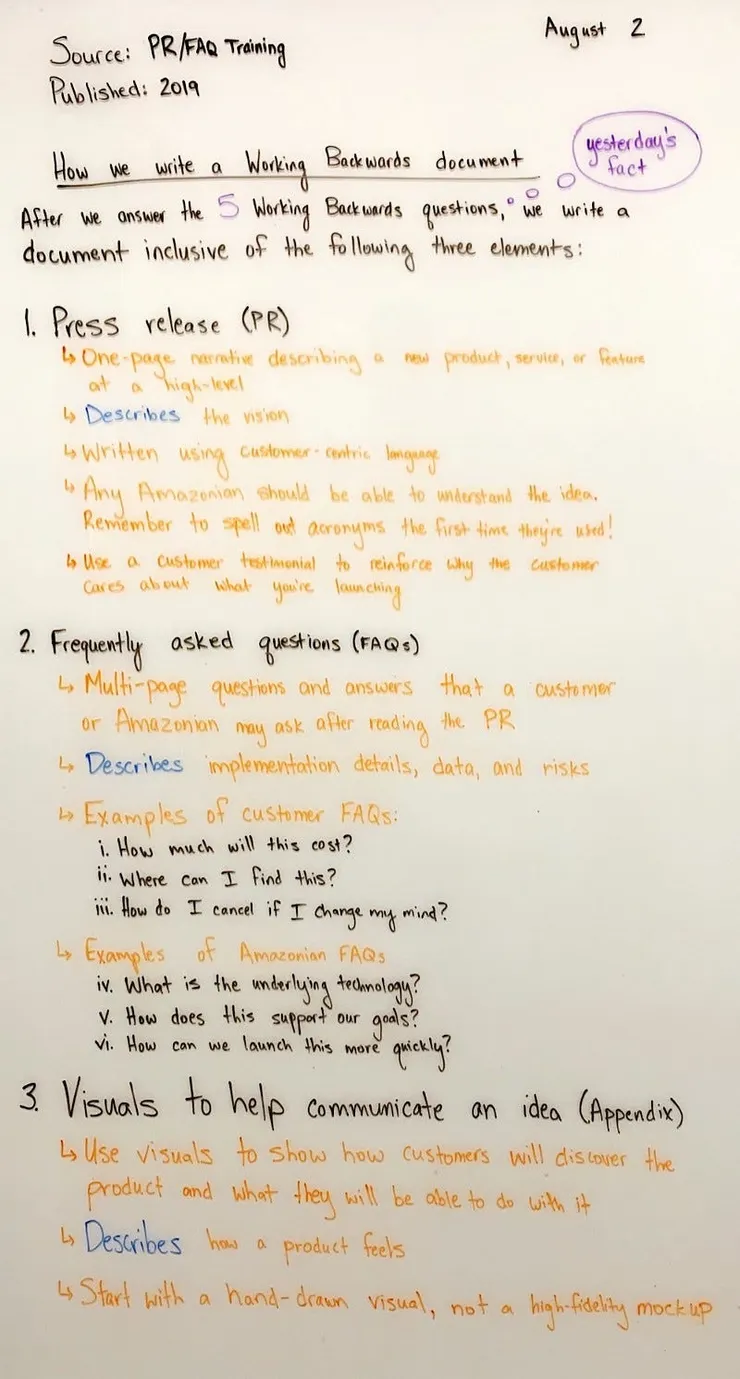 August 2
Source: PR/FAQ Training
Published: 2019
yesterday's
fact
How we write a Working Backwards document
After we answer the 5 Working Backwards questions, we write a
document inclusive of the following three elements:
1. Press release (PR)
↳ One-page narrative describing a new product, service, or feature
at a high-level
↳ Describes the vision
↳ Written using customer-centric language
↳ Any Amazonian should be able to understand the idea.
Remember to spell out acronyms the first time they're used!
↳ Use a customer testimonial to reinforce why the customer
cares about what you're launching
2. Frequently asked questions (FAQs)
↳ Multi-page questions and answers that a customer
or Amazonian may ask after reading the PR
↳ Describes implementation details, data, and risks
↳ Examples of customer FAQs:
i. How much will this cost?
ii. Where can I find this?
iii. How do I cancel if I change my mind?
↳ Examples of Amazonian FAQs
iv. What is the underlying technology?
v. How does this support our goals?
vi. How can we launch this more quickly?
3. Visuals to help communicate an idea (Appendix)
↳ Use visuals to show how customers will discover the
product and what they will be able to do with it
↳ Describes how a product feels
↳ Start with a hand-drawn visual, not a high-fidelity mockup